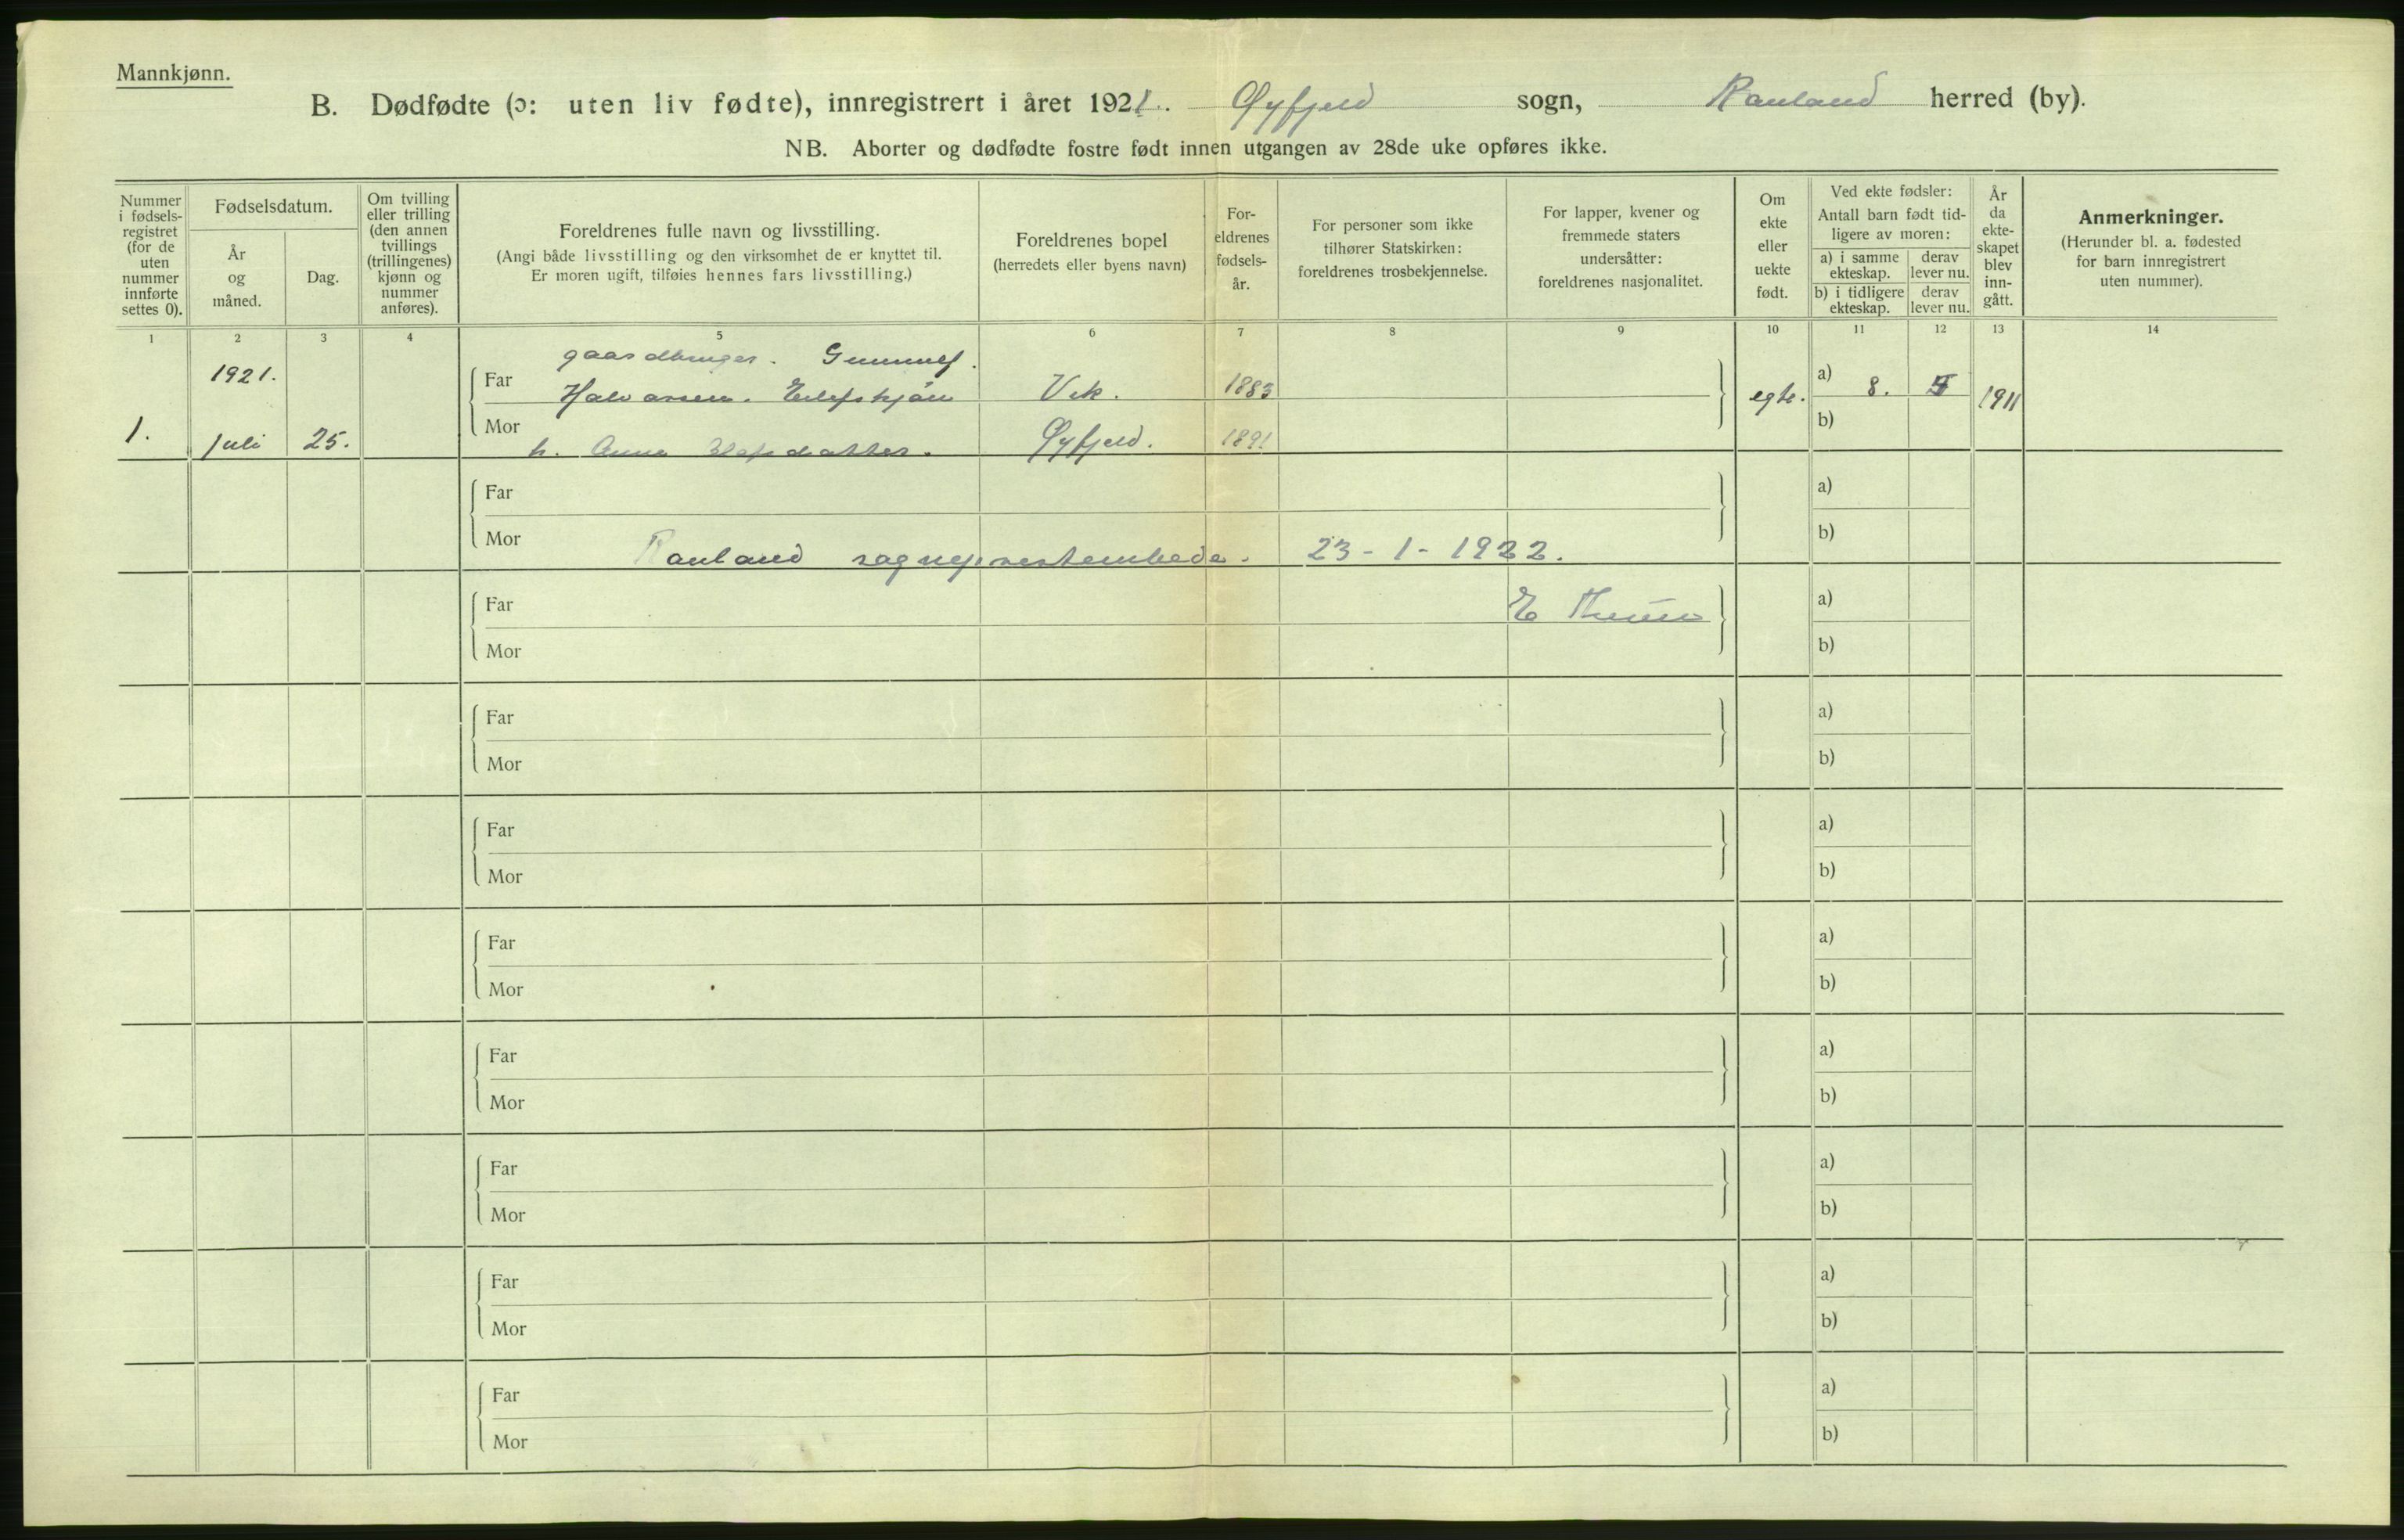 Mannkjønn.
B. Dødfødte (ɔ: uten liv fødte), innregistrert i året 1921. Øyfjeld sogn, Rauland herred (by).
NB. Aborter og dødfødte fostre født innen utgangen av 28de uke opføres ikke.
Nummer i fødsels-registret (for de uten nummer innførte settes 0).
Fødselsdatum.
År og måned.
Dag.
Om tvilling eller trilling (den annen tvillings (trillingenes) kjønn og nummer anføres).
Foreldrenes fulle navn og livsstilling.
(Angi både livsstilling og den virksomhet de er knyttet til.
Er moren ugift, tilføies hennes fars livsstilling.)
Foreldrenes bopel
(herredets eller byens navn)
For-eldrenes fødsels-år.
For personer som ikke tilhører Statskirken: foreldrenes trosbekjennelse.
For lapper, kvener og fremmede staters undersåtter: foreldrenes nasjonalitet.
Om ekte eller uekte født.
Ved ekte fødsler:
Antall barn født tid-ligere av moren:
a) i samme ekteskap.
derav lever nu.
b) i tidligere ekteskap.
derav lever nu.
År da ekte-skapet blev inn-gått.
Anmerkninger.
(Herunder bl. a. fødested for barn innregistrert uten nummer).
1 2 3 4 5 6 7 8 9 10 11 12 13 14
gaardbruger. Gunnulf
1921. Far Halvorsen. Vik. 1883 egte. a) 8. 5 1911
1. juli 25. Mor h. Anne Øyfjeld. 1891 b)
Far a)
Mor b)
Rauland sogneprestembede. 23-1-1922.
Far E a)
Mor b)
Far a)
Mor b)
Far a)
Mor b)
Far a)
Mor b)
Far a)
Mor b)
Far a)
Mor b)
Far a)
Mor b)
Far a)
Mor b)